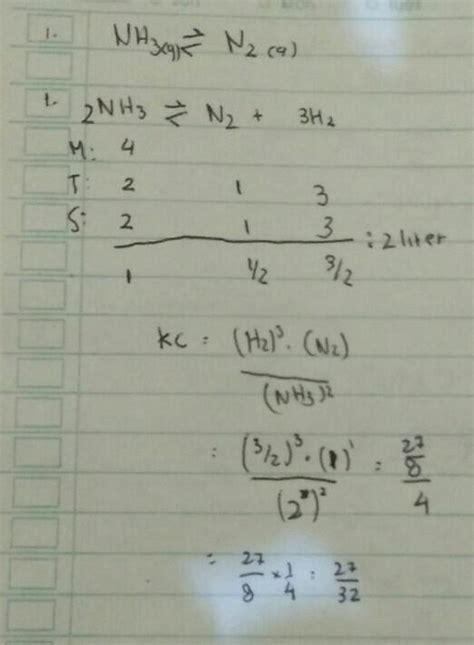 1. NH3(g) ⇌ N2(g)
1. 2NH3 ⇌ N2 + 3H2
M: 4
T: 2 1 3
S: 2 1 3 : 2 liter
1 1/2 3/2
KC : (H2)³ . (N2)
(NH3)²
: (3/2)³ . (1)¹ : 27/8
(2)² 4
= 27/8 x 1/4 : 27/32